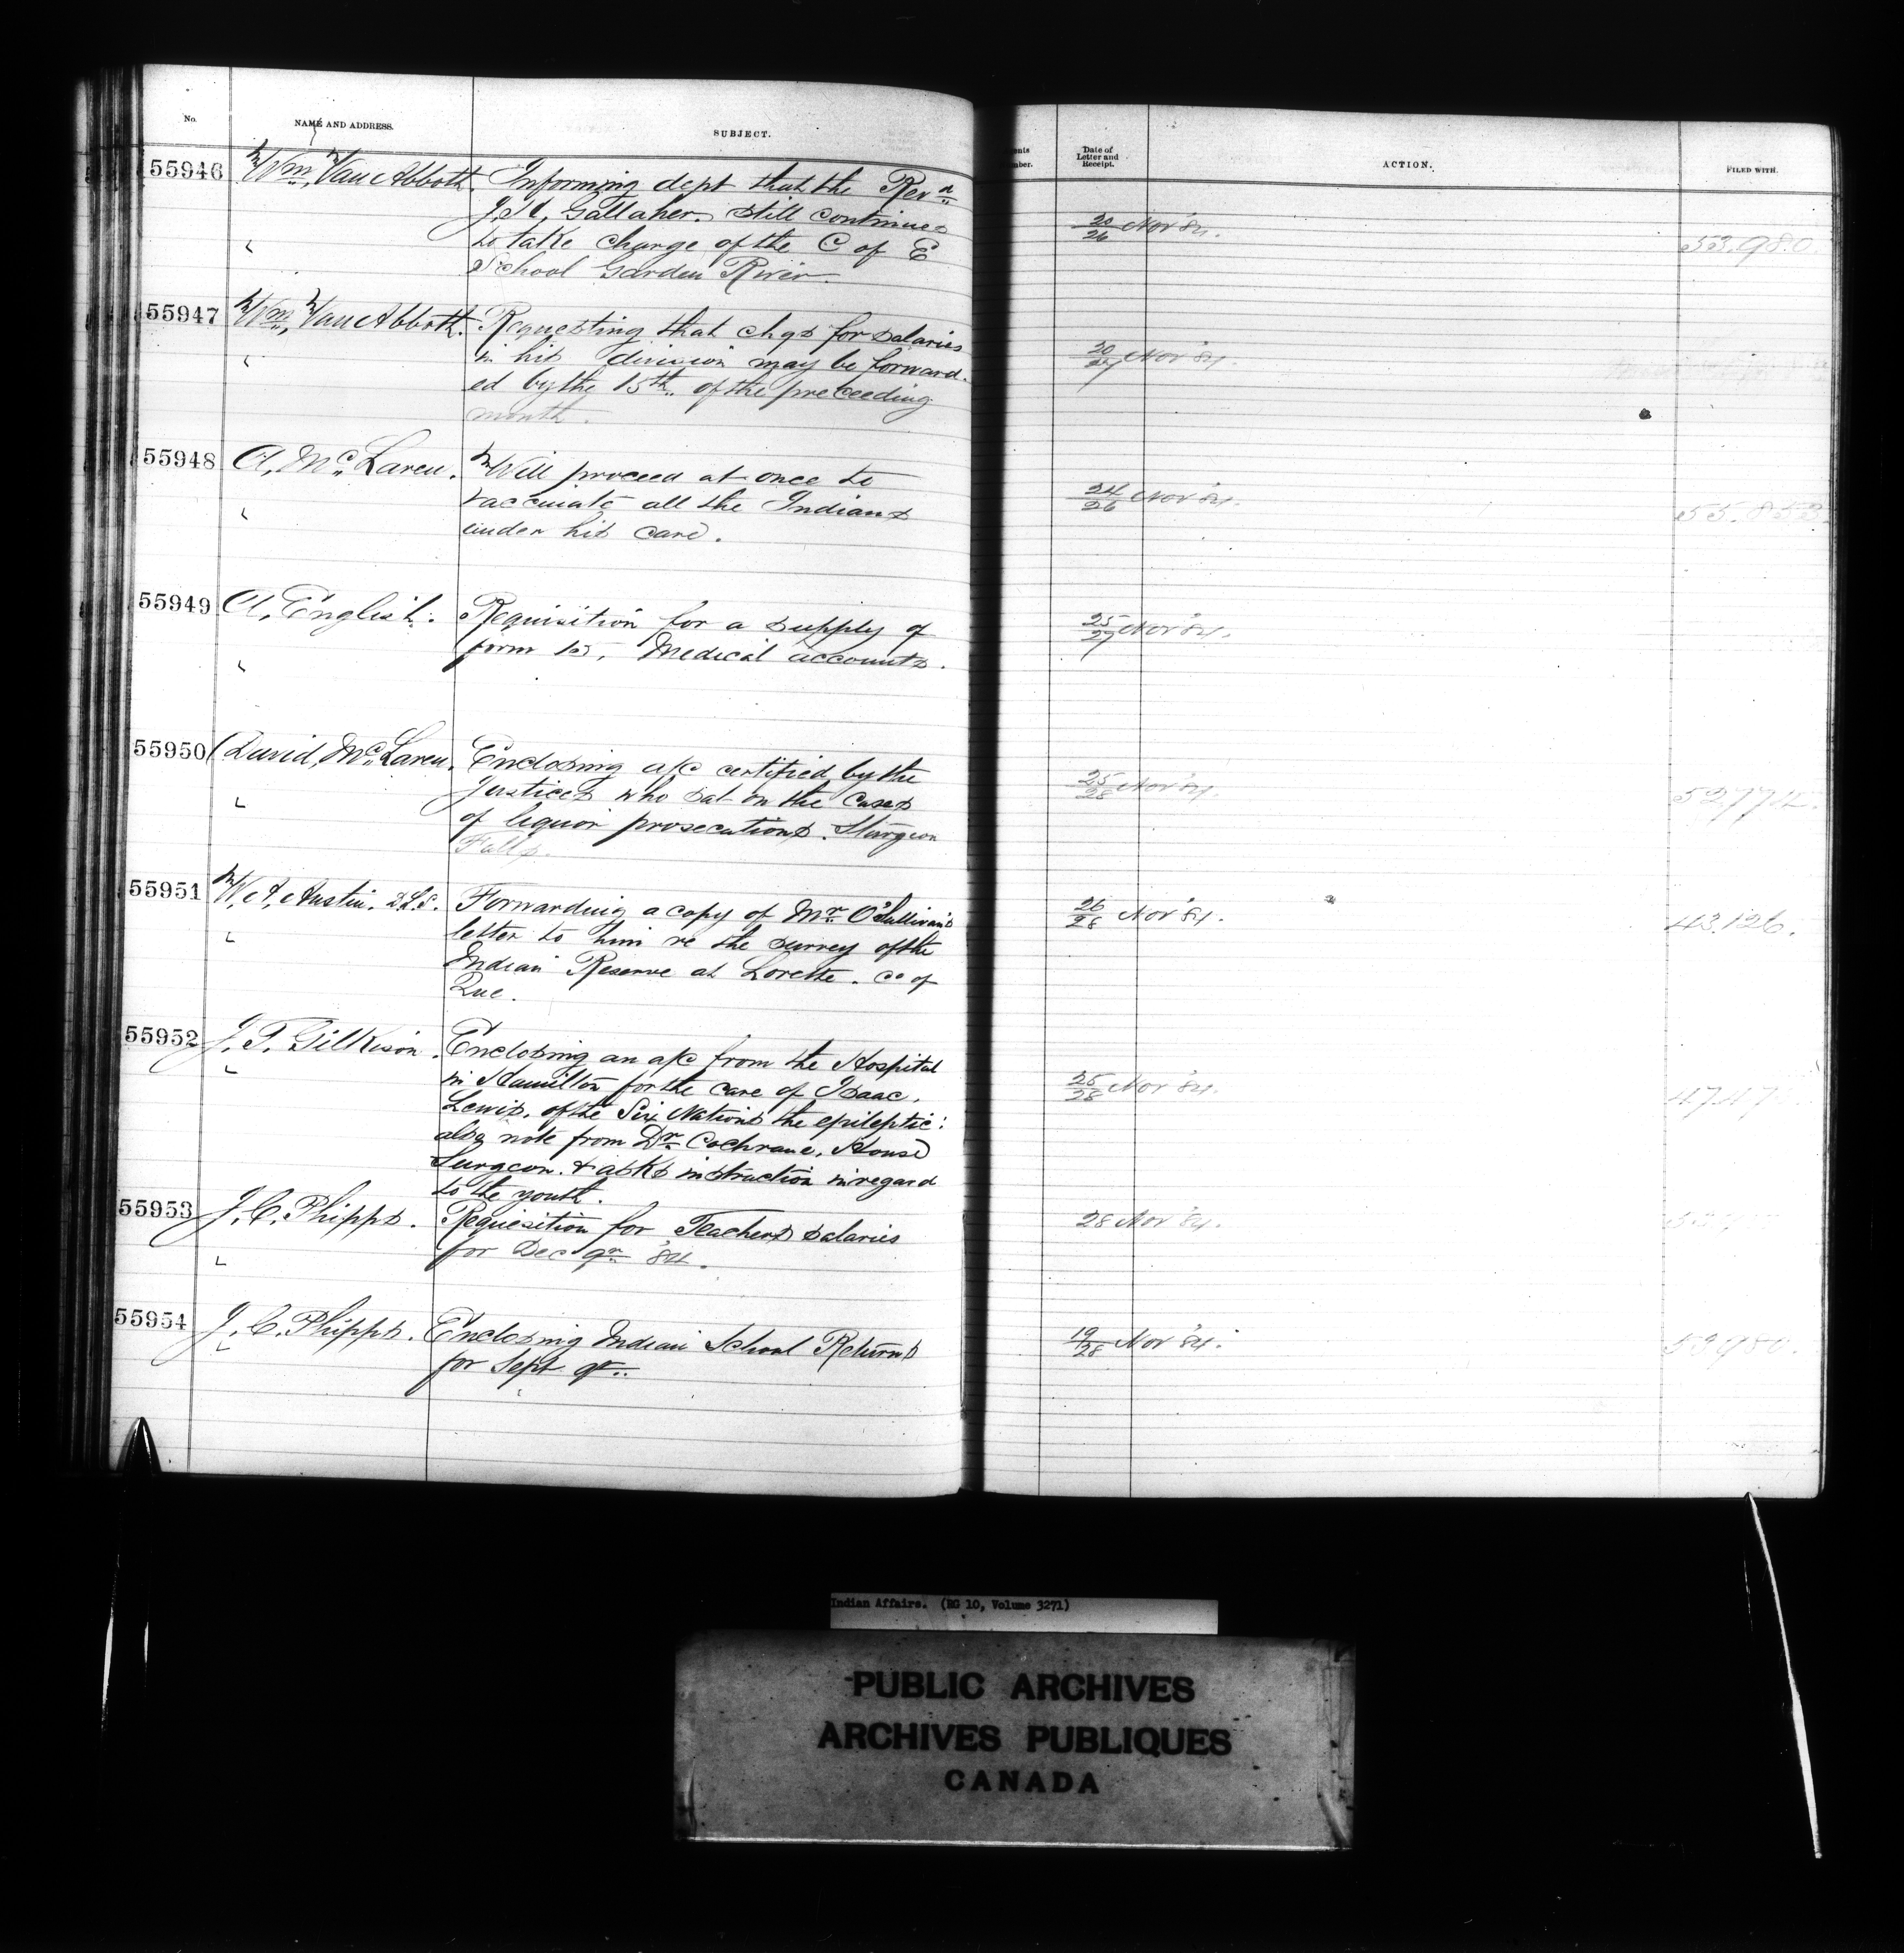 No.
NAME AND ADDRESS.
SUBJECT.
Date of
Letter and
Receipt.
ACTION.
FILED WITH.
55946 Wm. Van Abbott. Informing dept that the Revd
J. H. Gallaher. still continues
to take charge of the C of E
School Garden River.
20/26 Nov '84.
53.980.
55947 Wm. Van Abbott. Requesting that chqs for salaries
in his division may be forward-
ed by the 15th. of the preceeding
month.
20/27 Nov '84
55948 A. McLaren. Will proceed at once to
vaccinate all the Indians
under his care.
24/26 Nov '84.
55.853.
55949 A. English. Requisition for a supply of
form 15, Medical accounts.
25/27 Nov '84.
55950 David McLaren. Enclosing a/c certified by the
Justices who sat on the cases
of liquor prosecutions. Sturgeon
Falls.
25/28 Nov '84.
55951 W. A. Austin. D.L.S. Forwarding a copy of Mr. O'Sullivan's
letter to him re the survey of the
Indian Reserve at Lorette. Co of
Que.
26/28 Nov '84.
43.126.
55952 J. T. Gilkison. Enclosing an a/c from the Hospital
in Hamilton for the care of Isaac.
Lewis. of the Six Nations the epileptic:
also note from Dr. Cochrane. House
Surgeon. & asks instruction in regard
to the youth.
25/28 Nov '84.
55953 J. C. Phipps. Requisition for Teachers salaries
for Dec qr. '84.
28 Nov '84.
55954 J. C. Phipps. Enclosing Indian School Returns
for Sept qr..
19/28 Nov '84.
53980.
Indian Affairs. (RG 10, Volume 3271)
PUBLIC ARCHIVES
ARCHIVES PUBLIQUES
CANADA